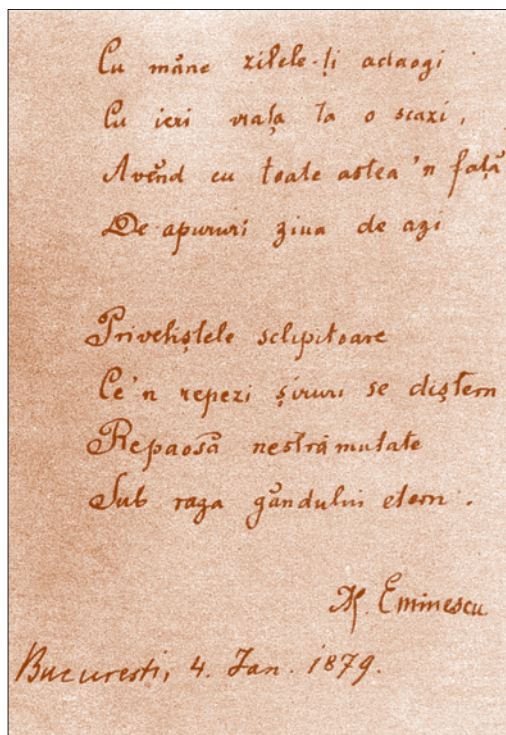 Cu mâne zilele-ți adaogi
Cu ieri viața ta o scazi,
Avênd cu toate astea 'n față
De apururi ziua de azi
Priveliștele sclipitoare
Ce 'n repezi șiruri se diștern
Repaosă nestrămutate
Sub raza gândului etern.
M. Eminescu
Bucuresti, 4. Ian. 1879.